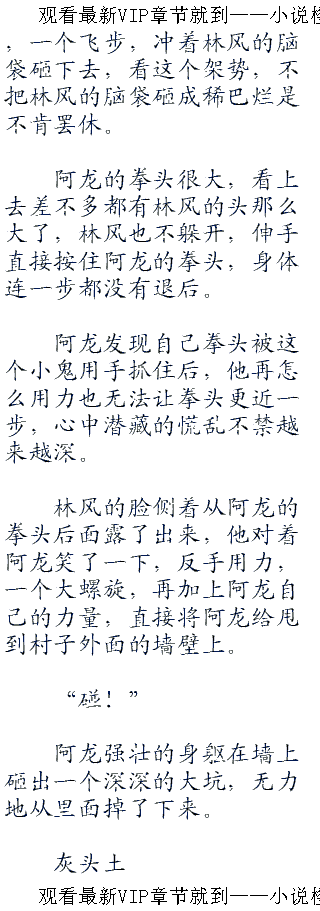 观看最新VIP章节就到——小说楼
，一个飞步，冲着林风的脑
袋砸下去，看这个架势，不
把林风的脑袋砸成稀巴烂是
不肯罢休。
阿龙的拳头很大，看上
去差不多都有林风的头那么
大了，林风也不躲开，伸手
直接按住阿龙的拳头，身体
连一步都没有退后。
阿龙发现自己拳头被这
个小鬼用手抓住后，他再怎
么用力也无法让拳头更近一
步，心中潜藏的慌乱不禁越
来越深。
林风的脸侧着从阿龙的
拳头后面露了出来，他对着
阿龙笑了一下，反手用力，
一个大螺旋，再加上阿龙自
己的力量，直接将阿龙给甩
到村子外面的墙壁上。
“碰！”
阿龙强壮的身躯在墙上
砸出一个深深的大坑，无力
地从里面掉了下来。
灰头土
观看最新VIP章节就到——小说楼